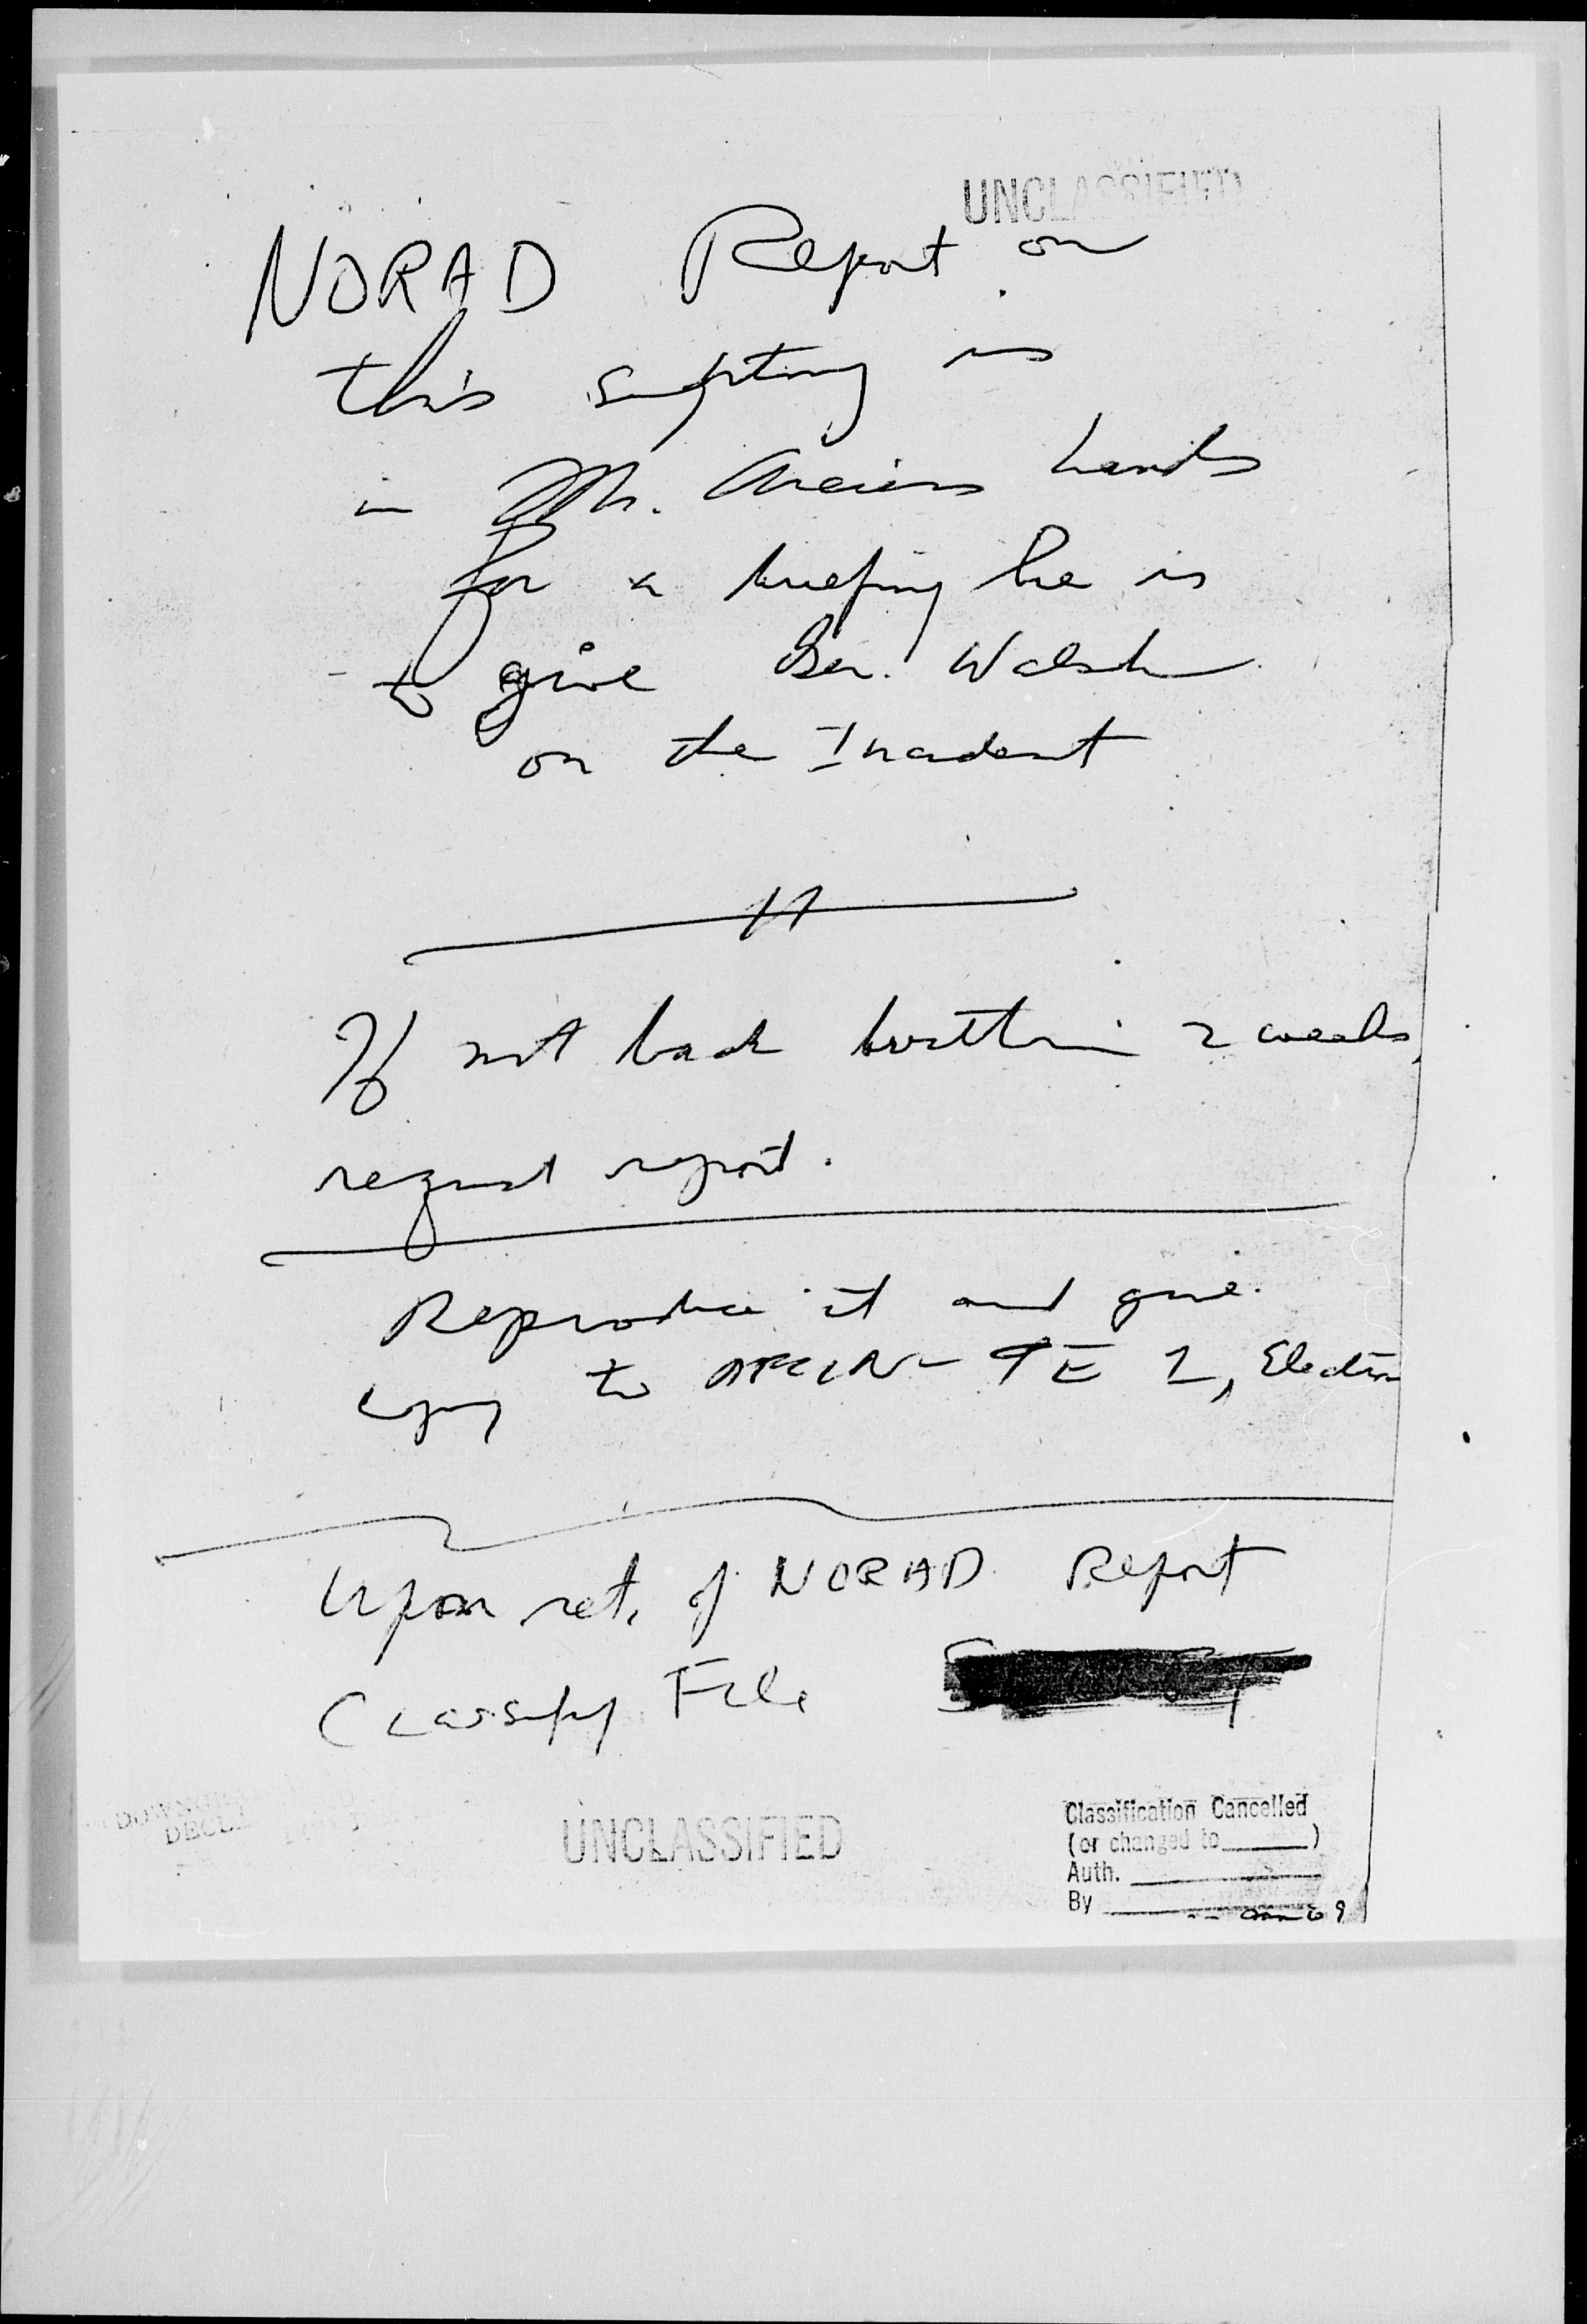 UNCLASSIFIED
NORAD Report on
this sighting is
in Mr. hands
for a briefing he is
to give Gen. Walsh
on the Incident
If not back within 2 weeks,
request report.
Reproduce it and give
copy to AFCIN-4E 1, Electron
Upon ret. of NORAD Report
Classify File
UNCLASSIFIED
Classification Cancelled
(or changed to ______)
Auth.
By